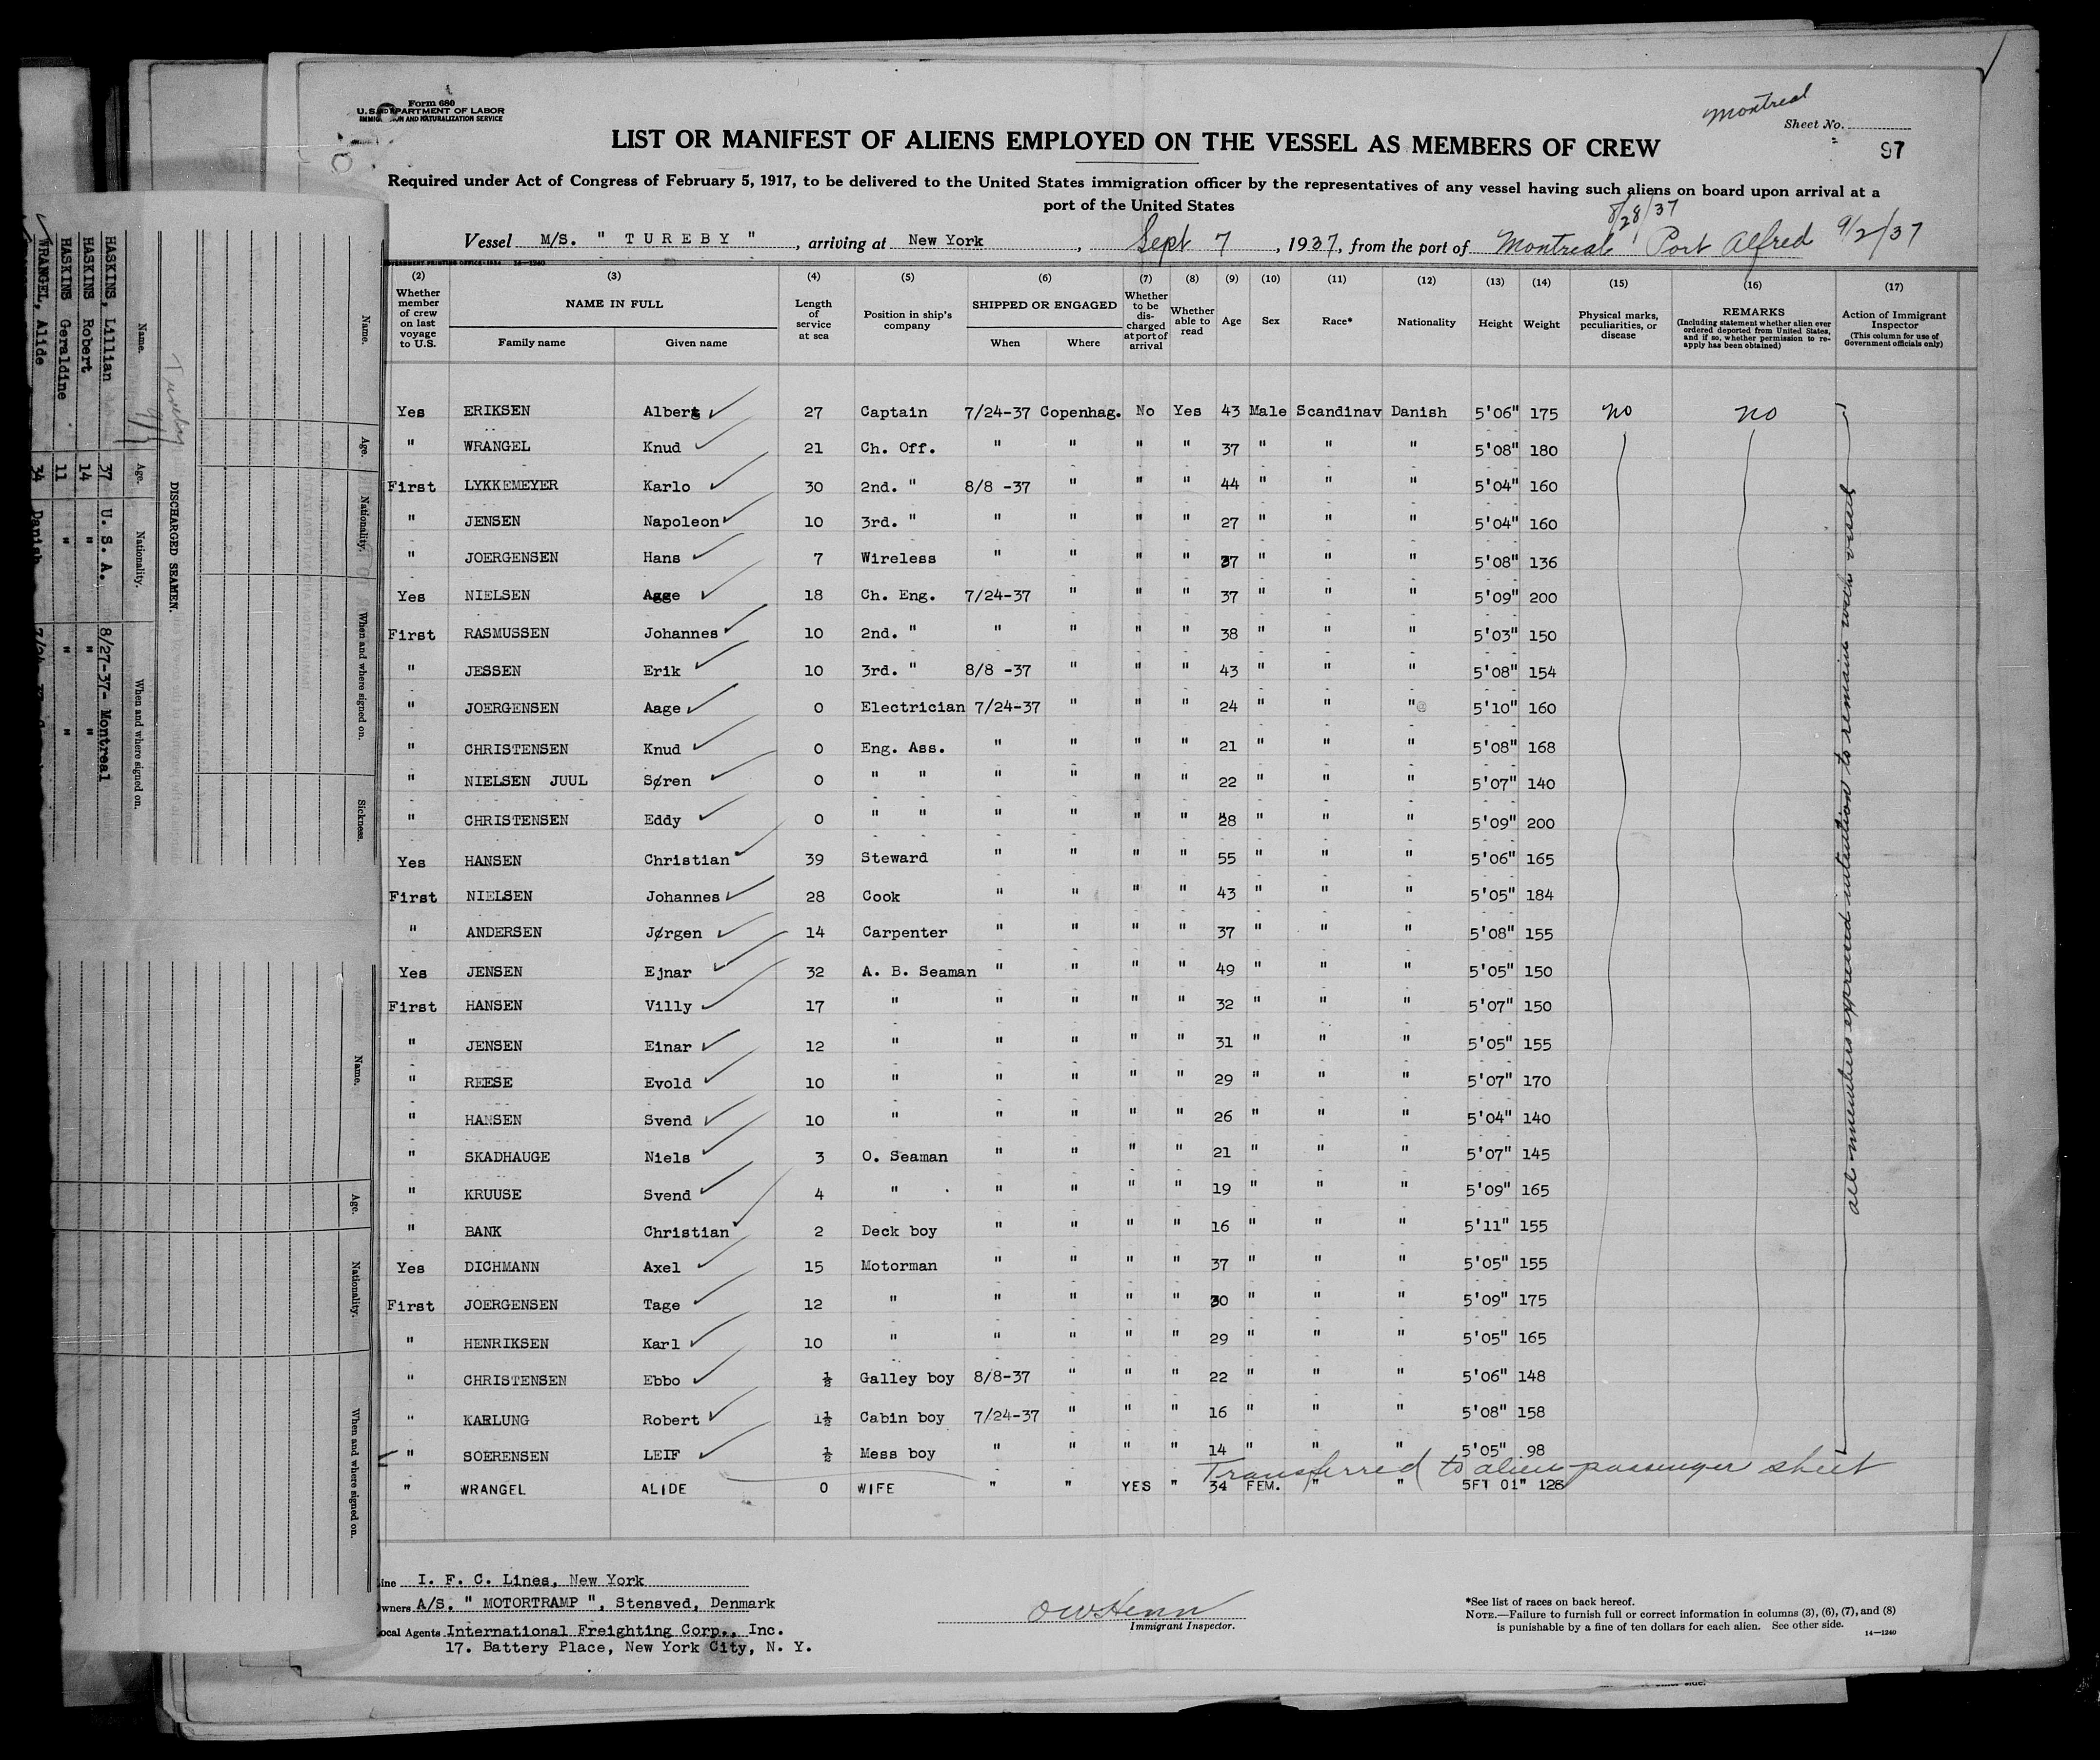 Form 680
U. S. DEPARTMENT OF LABOR
IMMIGRATION AND NATURALIZATION SERVICE
Montreal
Sheet No.
97
LIST OR MANIFEST OF ALIENS EMPLOYED ON THE VESSEL AS MEMBERS OF CREW
Required under Act of Congress of February 5, 1917, to be delivered to the United States immigration officer by the representatives of any vessel having such aliens on board upon arrival at a
port of the United States
8/28/37
Vessel M/S. " T U R E B Y " , arriving at New York , Sept 7 , 1937, from the port of Montreal, Port Alfred 9/2/37
(2) (3) (4) (5) (6) (7) (8) (9) (10) (11) (12) (13) (14) (15) (16) (17)
Whether member of crew on last voyage to U.S.
NAME IN FULL
Family name Given name
Length of service at sea
Position in ship's company
SHIPPED OR ENGAGED
When Where
Whether to be discharged at port of arrival
Whether able to read
Age Sex Race* Nationality Height Weight
Physical marks, peculiarities, or disease
REMARKS
(Including statement whether alien ever ordered deported from United States, and if so, whether permission to reapply has been obtained)
Action of Immigrant Inspector
(This column for use of Government officials only)
Yes ERIKSEN Albert 27 Captain 7/24-37 Copenhag. No Yes 43 Male Scandinav Danish 5'06" 175 no no
" WRANGEL Knud 21 Ch. Off. " " " " 37 " " " 5'08" 180
First LYKKEMEYER Karlo 30 2nd. " 8/8 -37 " " " 44 " " " 5'04" 160
" JENSEN Napoleon 10 3rd. " " " " " 27 " " " 5'04" 160
" JOERGENSEN Hans 7 Wireless " " " " 37 " " " 5'08" 136
Yes NIELSEN Aage 18 Ch. Eng. 7/24-37 " " " 37 " " " 5'09" 200
First RASMUSSEN Johannes 10 2nd. " " " " " 38 " " " 5'03" 150
" JESSEN Erik 10 3rd. " 8/8 -37 " " " 43 " " " 5'08" 154
" JOERGENSEN Aage 0 Electrician 7/24-37 " " " 24 " " " 5'10" 160
" CHRISTENSEN Knud 0 Eng. Ass. " " " " 21 " " " 5'08" 168
" NIELSEN JUUL Søren 0 " " " " " " 22 " " " 5'07" 140
" CHRISTENSEN Eddy 0 " " " " " " 28 " " " 5'09" 200
Yes HANSEN Christian 39 Steward " " " " 55 " " " 5'06" 165
First NIELSEN Johannes 28 Cook " " " " 43 " " " 5'05" 184
" ANDERSEN Jørgen 14 Carpenter " " " " 37 " " " 5'08" 155
Yes JENSEN Ejnar 32 A. B. Seaman " " " " 49 " " " 5'05" 150
First HANSEN Villy 17 " " " " " 32 " " " 5'07" 150
" JENSEN Einar 12 " " " " " 31 " " " 5'05" 155
" REESE Evold 10 " " " " " 29 " " " 5'07" 170
" HANSEN Svend 10 " " " " " 26 " " " 5'04" 140
" SKADHAUGE Niels 3 O. Seaman " " " " 21 " " " 5'07" 145
" KRUUSE Svend 4 " " " " " 19 " " " 5'09" 165
" BANK Christian 2 Deck boy " " " " 16 " " " 5'11" 155
Yes DICHMANN Axel 15 Motorman " " " " 37 " " " 5'05" 155
First JOERGENSEN Tage 12 " " " " " 30 " " " 5'09" 175
" HENRIKSEN Karl 10 " " " " " 29 " " " 5'05" 165
" CHRISTENSEN Ebbo ½ Galley boy 8/8-37 " " " 22 " " " 5'06" 148
" KARLUNG Robert 1½ Cabin boy 7/24-37 " " " 16 " " " 5'08" 158
" SOERENSEN LEIF ½ Mess boy " " " " 14 " " " 5'05" 98
Transferred to alien passenger sheet
" WRANGEL ALIDE 0 WIFE " " YES " 34 FEM. " " 5FT 01" 128
all members expressed intention to remain with vessel
Line I. F. C. Lines, New York
Owners A/S. " MOTORTRAMP ", Stensved, Denmark
Local Agents International Freighting Corp., Inc.
17. Battery Place, New York City, N. Y.
OWHenn
Immigrant Inspector.
*See list of races on back hereof.
NOTE.—Failure to furnish full or correct information in columns (3), (6), (7), and (8)
is punishable by a fine of ten dollars for each alien. See other side.
14—1240
Tureby
DISCHARGED SEAMEN.
Name. Age. Nationality. When and where signed on.
HASKINS, Lillian 37 U. S. A. 8/27-37- Montreal
HASKINS Robert 14 " " "
HASKINS Geraldine 11 " " "
WRANGEL, Alide 34 Danish
Name. Age. Nationality. When and where signed on. Sickness.
Name. Age. Nationality. When and where signed on.